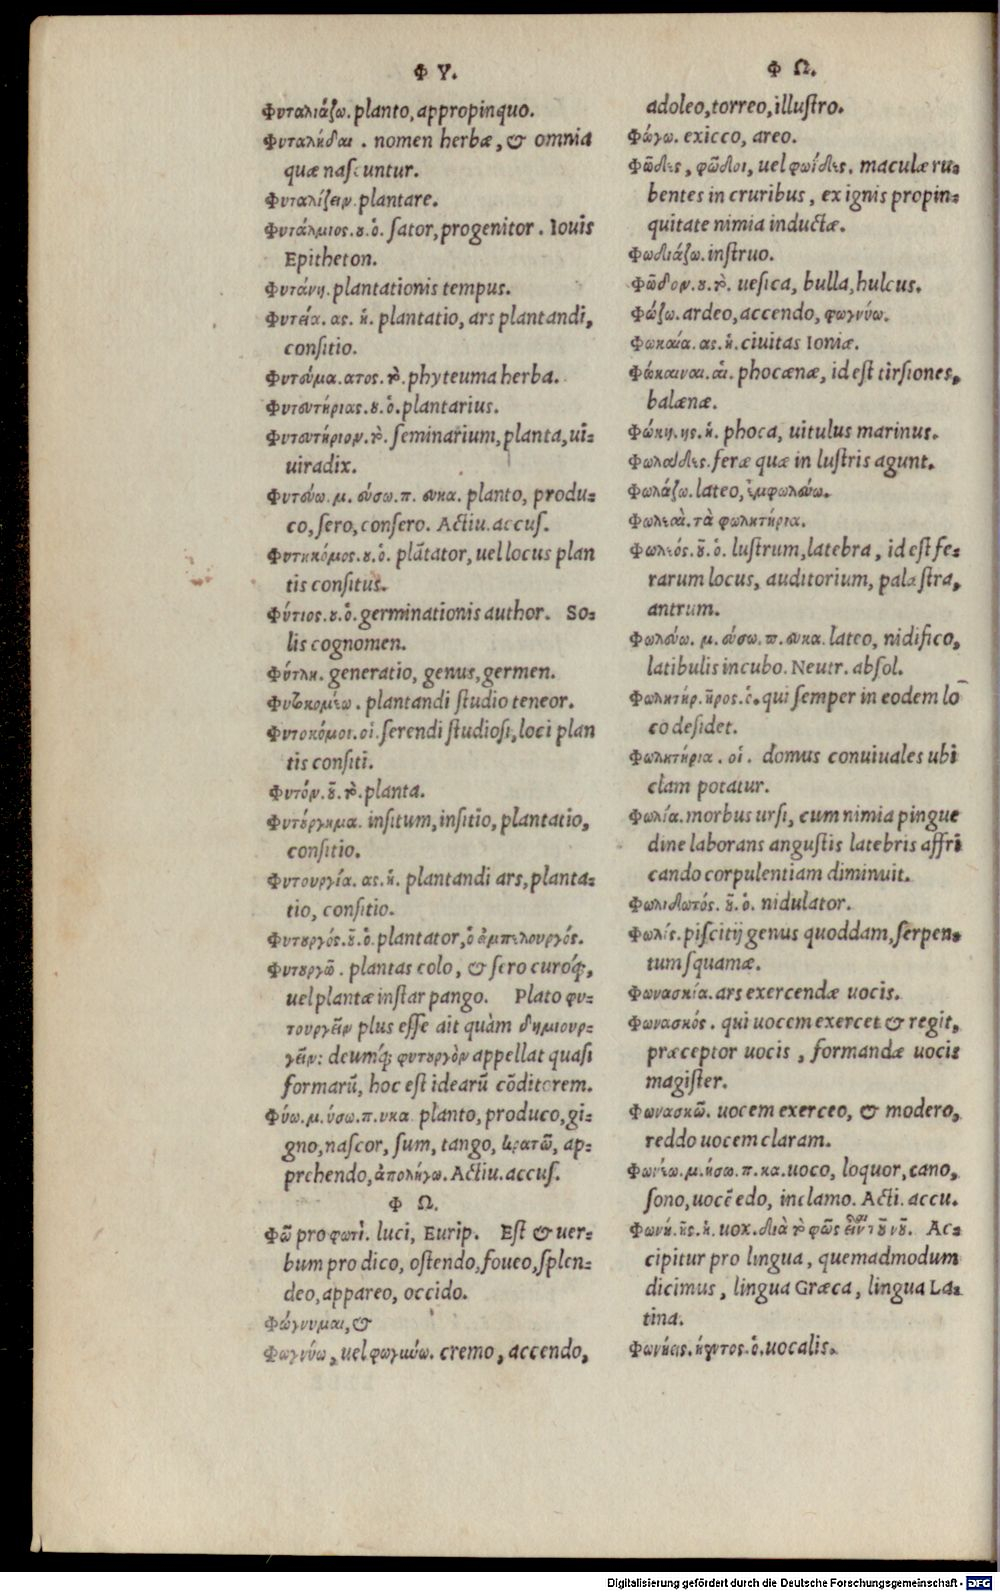 Φ Υ.
Φυταλιάζω. planto, appropinquo.
Φυταλήδαι . nomen herbæ, & omnia
quæ nascuntur.
Φυταλίζειν. plantare.
Φυτάλμιος.ου.ὁ. sator, progenitor . Iouis
Epitheton.
Φυτάνη. plantationis tempus.
Φυτεία. ας. ἡ. plantatio, ars plantandi,
consitio.
Φυτεύμα.ατος.τὸ. phyteuma herba.
Φυτευτήριας.ου.ὁ. plantarius.
Φυτευτήριον.τὸ. seminarium, planta, ui-
uiradix.
Φυτεύω.μ. εύσω.π. ευκα. planto, produ-
co, sero, consero. Actiu. accus.
Φυτηκόμος.ου.ὁ. plātator, uel locus plan
tis consitus.
Φύτιος.ου.ὁ. germinationis author. So-
lis cognomen.
Φύτλη. generatio, genus, germen.
Φυτοκομέω . plantandi studio teneor.
Φυτοκόμοι.οἱ. serendi studiosi, loci plan
tis consiti.
Φυτόν.οῦ.τὸ. planta.
Φυτούργημα. insitum, insitio, plantatio,
consitio.
Φυτουργία. ας.ἡ. plantandi ars, planta-
tio, consitio.
Φυτουργός.οῦ.ὁ. plantator, ὁ ἀμπελουργός.
Φυτουργῶ. plantas colo, & sero curoq́;,
uel plantæ instar pango. Plato φυ-
τουργεῖν plus esse ait quàm δημιουρ-
γεῖν: deumq́; φυτουργὸν appellat quasi
formarū, hoc est idearū cōditorem.
Φύω.μ.ύσω.π.υκα planto, produco, gi-
gno, nascor, sum, tango, κρατῶ, ap-
prehendo, ἀπολήγω. Actiu. accus.
Φ Ω.
Φῶ pro φωτὶ. luci, Eurip. Est & uer-
bum pro dico, ostendo, foueo, splen-
deo, appareo, occido.
Φώγνυμαι, &
Φωγνύω, uel φωγινύω. cremo, accendo,
Φ Ω.
adoleo, torreo, illustro.
Φώγω. exicco, areo.
Φῶδες, φῶδοι, uel φωΐδες. maculæ ru-
bentes in cruribus, ex ignis propin-
quitate nimia inductæ.
Φωδιάζω. instruo.
Φῶδον.ου.τὸ. uesica, bulla, hulcus.
Φώζω. ardeo, accendo, φωγνύω.
Φωκαία.ας.ἡ. ciuitas Ioniæ.
Φώκαιναι.αἱ. phocænæ, id est tirsiones,
balænæ.
Φώκη.ης.ἡ. phoca, uitulus marinus.
Φωλάδες. feræ quæ in lustris agunt.
Φωλάζω. lateo, ἐμφωλεύω.
Φωλεὰ. τὰ φωλητήρια.
Φωλεός.οῦ.ὁ. lustrum, latebra, id est fe-
rarum locus, auditorium, palæstra,
antrum.
Φωλεύω. μ. εύσω.π. ευκα. lateo, nidifico,
latibulis incubo. Neutr. absol.
Φωλητήρ.ῆρος.ὁ. qui semper in eodem lo
co desidet.
Φωλητήρια. οἱ. domus conuiuales ubi
clam potatur.
Φωλία. morbus ursi, cum nimia pingue
dine laborans angustis latebris affri
cando corpulentiam diminuit.
Φωλιδωτός. οῦ. ὁ. nidulator.
Φωλίς. piscitij genus quoddam, serpen-
tum squamæ.
Φωνασκία. ars exercendæ uocis.
Φωνασκός. qui uocem exercet & regit,
præceptor uocis, formandæ uocis
magister.
Φωνασκῶ. uocem exerceo, & modero,
reddo uocem claram.
Φωνέω.μ.ήσω.π.κα. uoco, loquor, cano,
sono, uocē edo, inclamo. Acti. accu.
Φωνή. ῆς. ἡ. uox. διὰ τὸ φῶς εἶναι τοῦ νοῦ. Ac-
cipitur pro lingua, quemadmodum
dicimus, lingua Græca, lingua La-
tina.
Φωνήεις. ήεντος.ὁ. uocalis.
Digitalisierung gefördert durch die Deutsche Forschungsgemeinschaft - DFG